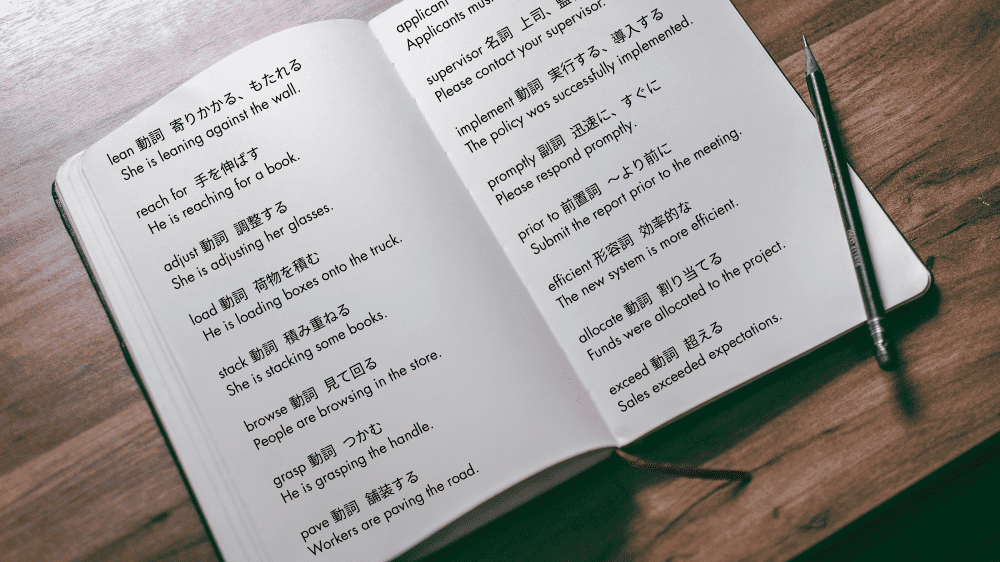 lean 動詞 寄りかかる、もたれる
She is leaning against the wall.
reach for 手を伸ばす
He is reaching for a book.
adjust 動詞 調整する
She is adjusting her glasses.
load 動詞 荷物を積む
He is loading boxes onto the truck.
stack 動詞 積み重ねる
She is stacking some books.
browse 動詞 見て回る
People are browsing in the store.
grasp 動詞 つかむ
He is grasping the handle.
pave 動詞 舗装する
Workers are paving the road.
applicant
Applicants
supervisor 名詞 上司、
Please contact your supervisor.
implement 動詞 実行する、導入する
The policy was successfully implemented.
promptly 副詞 迅速に、すぐに
Please respond promptly.
prior to 前置詞 〜より前に
Submit the report prior to the meeting.
efficient 形容詞 効率的な
The new system is more efficient.
allocate 動詞 割り当てる
Funds were allocated to the project.
exceed 動詞 超える
Sales exceeded expectations.